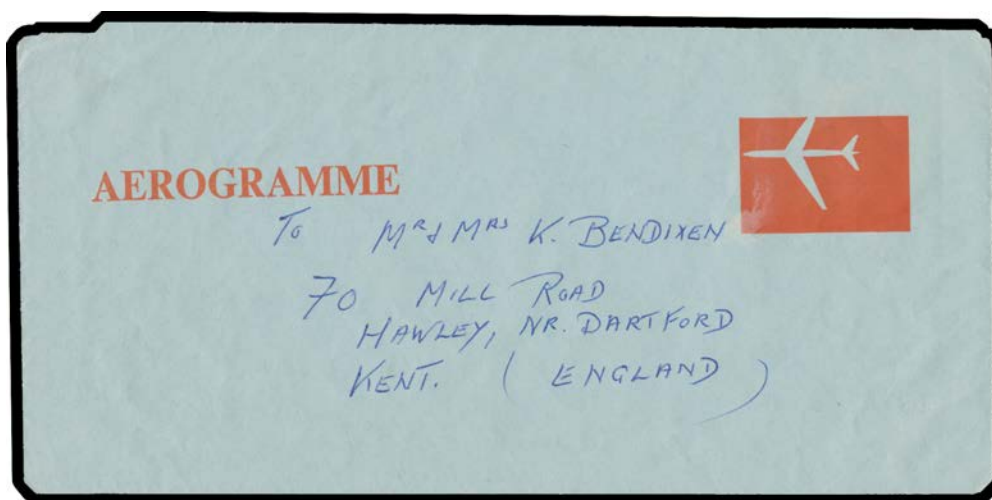 AEROGRAMME
To Mr & Mrs K. BENDIXEN
70 MILL ROAD
HAWLEY, NR. DARTFORD
KENT. ( ENGLAND )